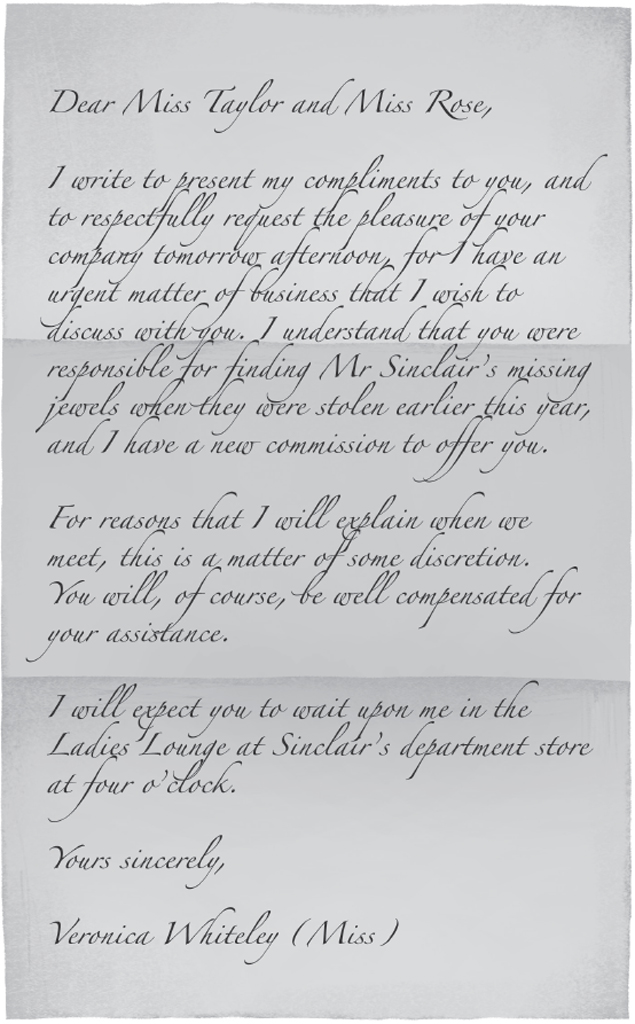 Dear Miss Taylor and Miss Rose,
I write to present my compliments to you, and
to respectfully request the pleasure of your
company tomorrow afternoon, for I have an
urgent matter of business that I wish to
discuss with you. I understand that you were
responsible for finding Mr Sinclair's missing
jewels when they were stolen earlier this year,
and I have a new commission to offer you.
For reasons that I will explain when we
meet, this is a matter of some discretion.
You will, of course, be well compensated for
your assistance.
I will expect you to wait upon me in the
Ladies Lounge at Sinclair's department store
at four o'clock.
Yours sincerely,
Veronica Whiteley (Miss)